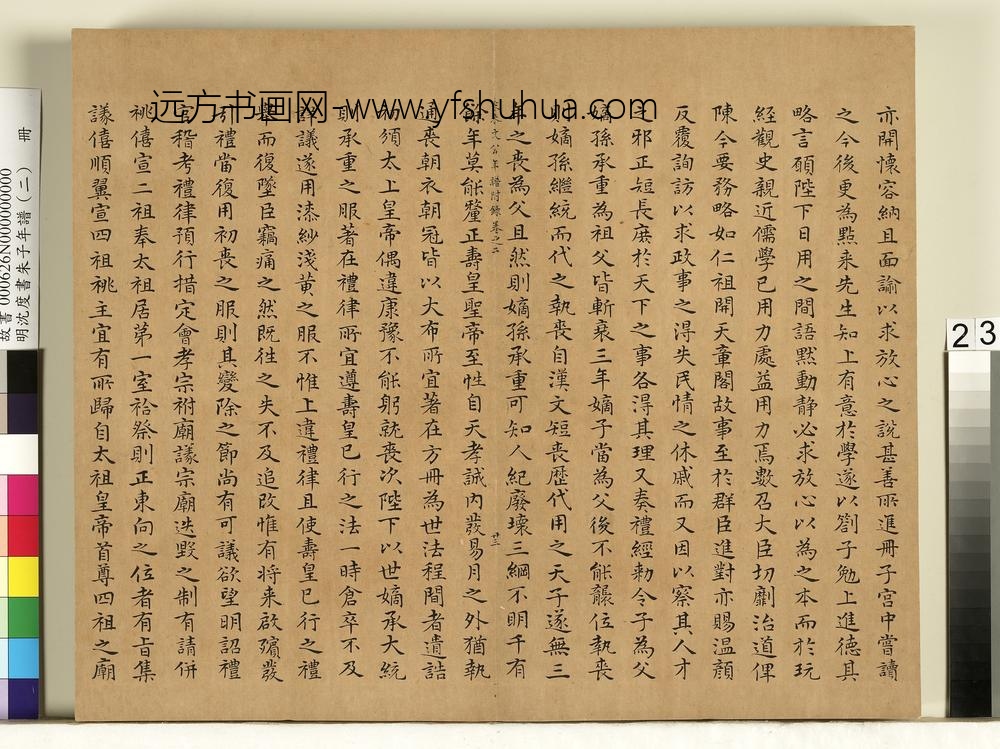 亦開懷容納且面諭以求放心之說甚善所進冊子宮中嘗讀
之今後更為點来先生知上有意於學遂以劄子勉上進德其
略言願陛下日用之間語默動静必求放心以為之本而於玩
經觀史親近儒學已用力處益用力焉數召大臣切劘治道俾
陳今要務略如仁祖開天章閣故事至於群臣進對亦賜温顔
反覆詢訪以求政事之得失民情之休戚而又因以察其人才
之邪正短長庶於天下之事各淂其理又奏禮經勅令子為父
嫡孫承重為祖父皆斬衰三年嫡子當為父後不能襲位執喪
則嫡孫繼統而代之執喪自漢文短喪歷代用之天子遂無三
年之喪為父且然則嫡孫承重可知人紀廢壞三綱不明千有
朱文公年譜附錄卷之二
廿三
餘年莫能釐正壽皇聖帝至性自天孝誠內發易月之外猶執
通喪朝衣朝冠皆以大布所宜著在方冊為世法程間者遺誥
初頒太上皇帝偶違康豫不能躬就喪次陛下以世嫡承大統
則承重之服著在禮律所宜遵壽皇已行之法一時倉卒不及
詳議遂用漆紗淺黃之服不惟上違禮律且使壽皇已行之禮
舉而復墜臣竊痛之然既往之失不及追改惟有将来啟殯發
引禮當復用初喪之服則其變除之節尚有可議欲望明詔禮
官稽考禮律預行措定會孝宗祔廟議宗廟迭毀之制有請併
祧僖宣二祖奉太祖居第一室祫祭則正東向之位者有旨集
議僖順翼宣四祖祧主宜有所歸自太祖皇帝首尊四祖之廟
远方书画网-www.yfshuhua.com
故書 000626N000000000
明沈度書朱子年譜(二) 冊
2 3